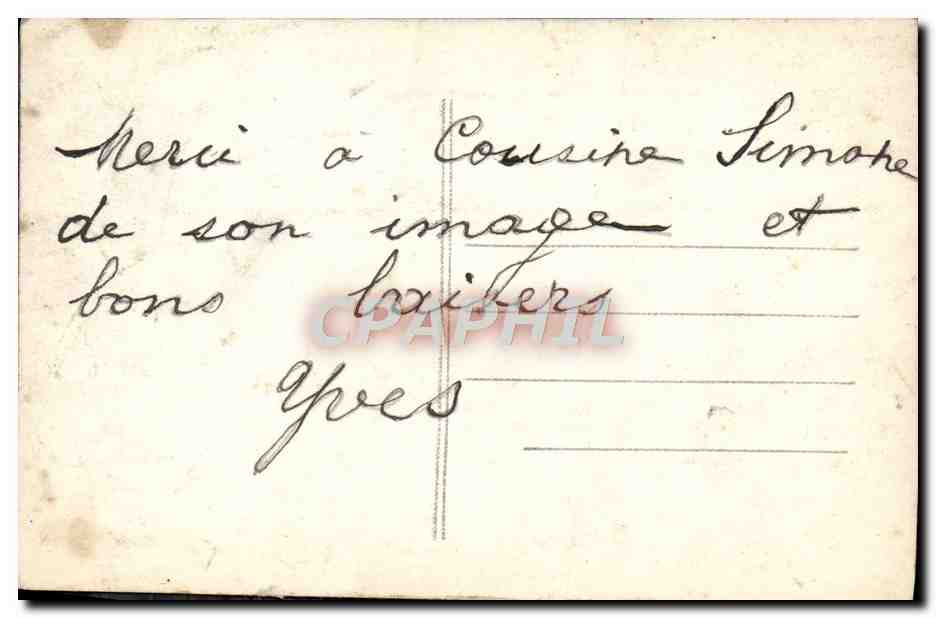 Merci à Cousine Simone
de son image et
bons baisers
CPAPHIL
Yves